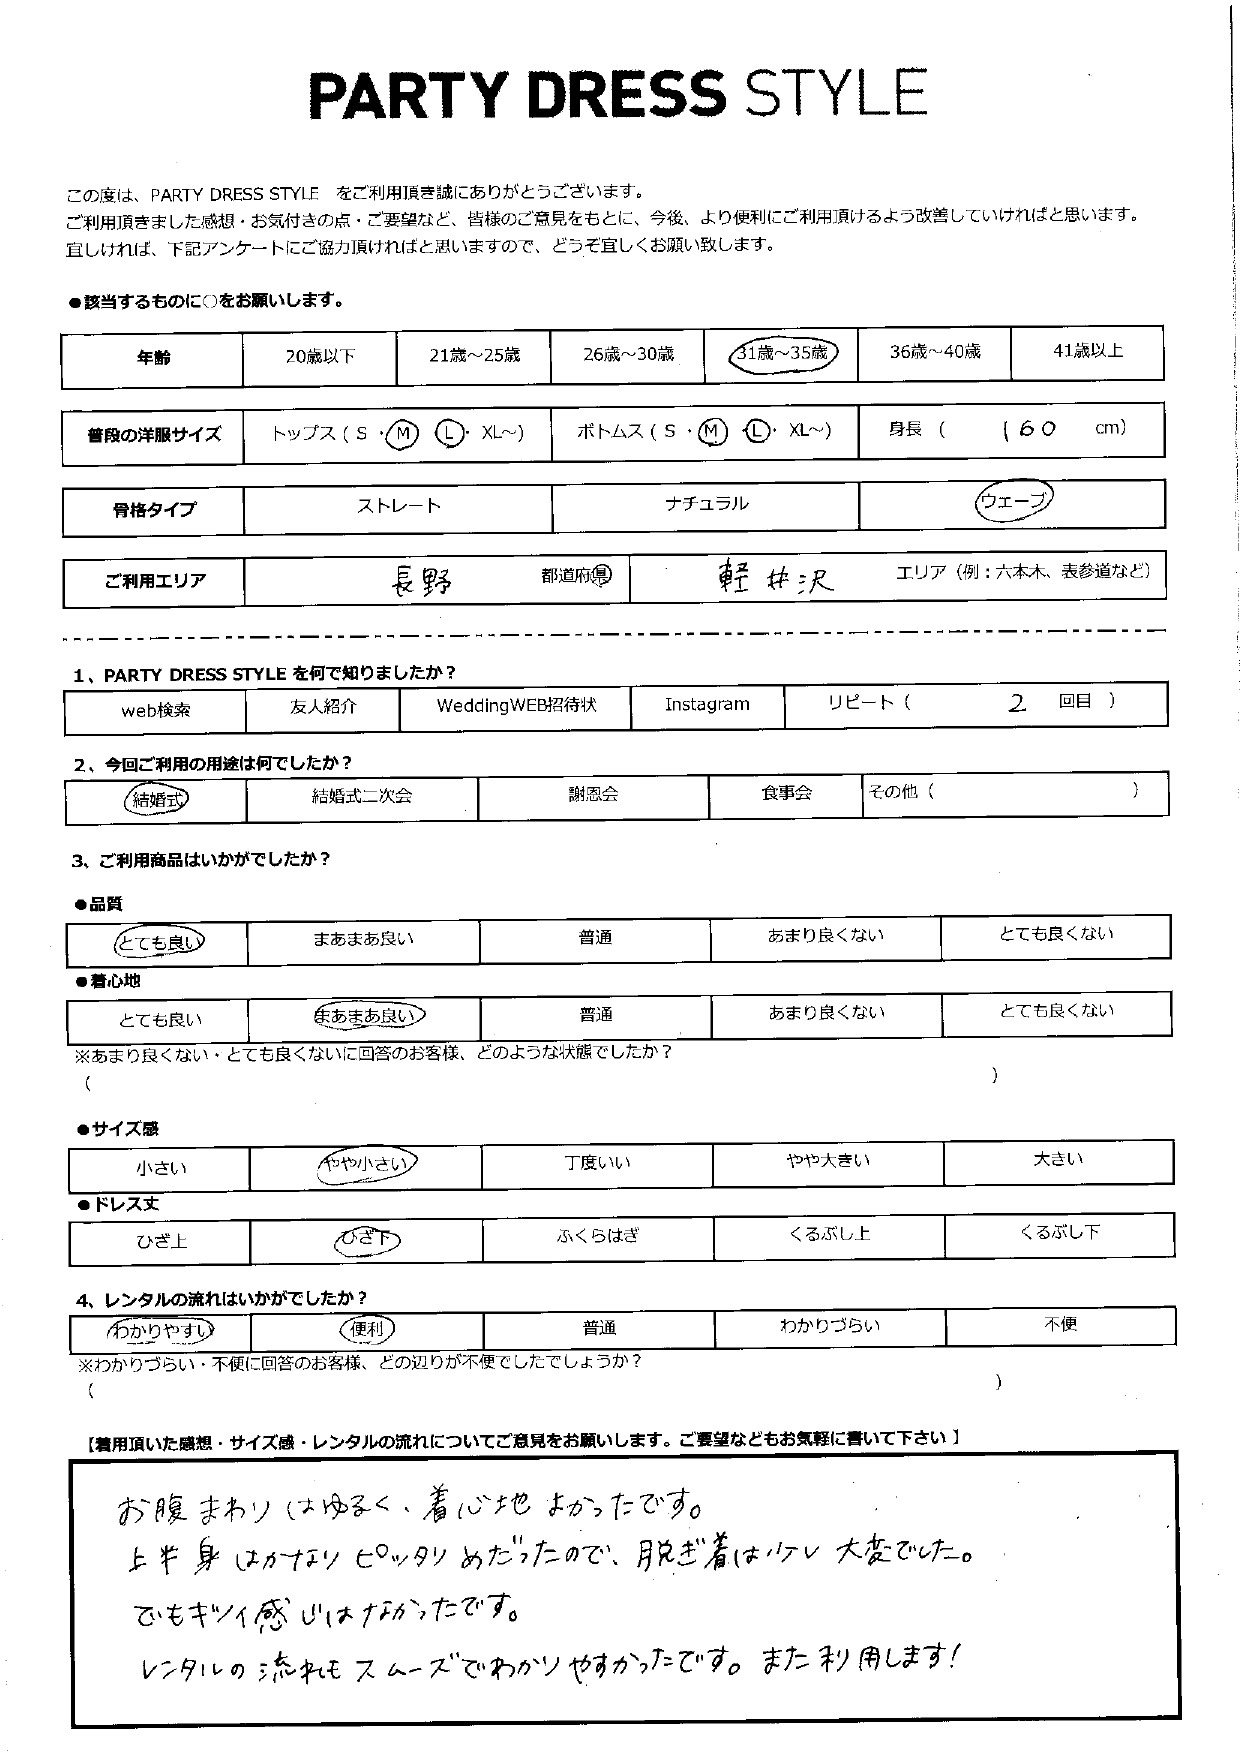 PARTY DRESS STYLE
この度は、PARTY DRESS STYLE をご利用頂き誠にありがとうございます。
ご利用頂きました感想・お気付きの点・ご要望など、皆様のご意見をもとに、今後、より便利にご利用頂けるよう改善していければと思います。
宜しければ、下記アンケートにご協力頂ければと思いますので、どうぞ宜しくお願い致します。
●該当するものに○をお願いします。
年齢 20歳以下 21歳～25歳 26歳～30歳 31歳～35歳 36歳～40歳 41歳以上
普段の洋服サイズ トップス ( S ・ M L ・ XL～) ボトムス ( S ・ M ・ L ・ XL～) 身長 ( 160 cm)
骨格タイプ ストレート ナチュラル ウェーブ
ご利用エリア 長野 都道府県 軽井沢 エリア（例：六本木、表参道など）
1、PARTY DRESS STYLE を何で知りましたか？
web検索 友人紹介 WeddingWEB招待状 Instagram リピート ( 2 回目 )
2、今回ご利用の用途は何でしたか？
結婚式 結婚式二次会 謝恩会 食事会 その他 ( )
3、ご利用商品はいかがでしたか？
●品質
とても良い まあまあ良い 普通 あまり良くない とても良くない
●着心地
とても良い まあまあ良い 普通 あまり良くない とても良くない
※あまり良くない・とても良くないに回答のお客様、どのような状態でしたか？
( )
●サイズ感
小さい やや小さい 丁度いい やや大きい 大きい
●ドレス丈
ひざ上 ひざ下 ふくらはぎ くるぶし上 くるぶし下
4、レンタルの流れはいかがでしたか？
わかりやすい 便利 普通 わかりづらい 不便
※わかりづらい・不便に回答のお客様、どの辺りが不便でしたでしょうか？
( )
【着用頂いた感想・サイズ感・レンタルの流れについてご意見をお願いします。ご要望などもお気軽に書いて下さい 】
お腹まわりはゆるく、着心地よかったです。
上半身はかなりピッタリめだったので、脱ぎ着は少し大変でした。
でもキツイ感じはなかったです。
レンタルの流れもスムーズでわかりやすかったです。また利用します!